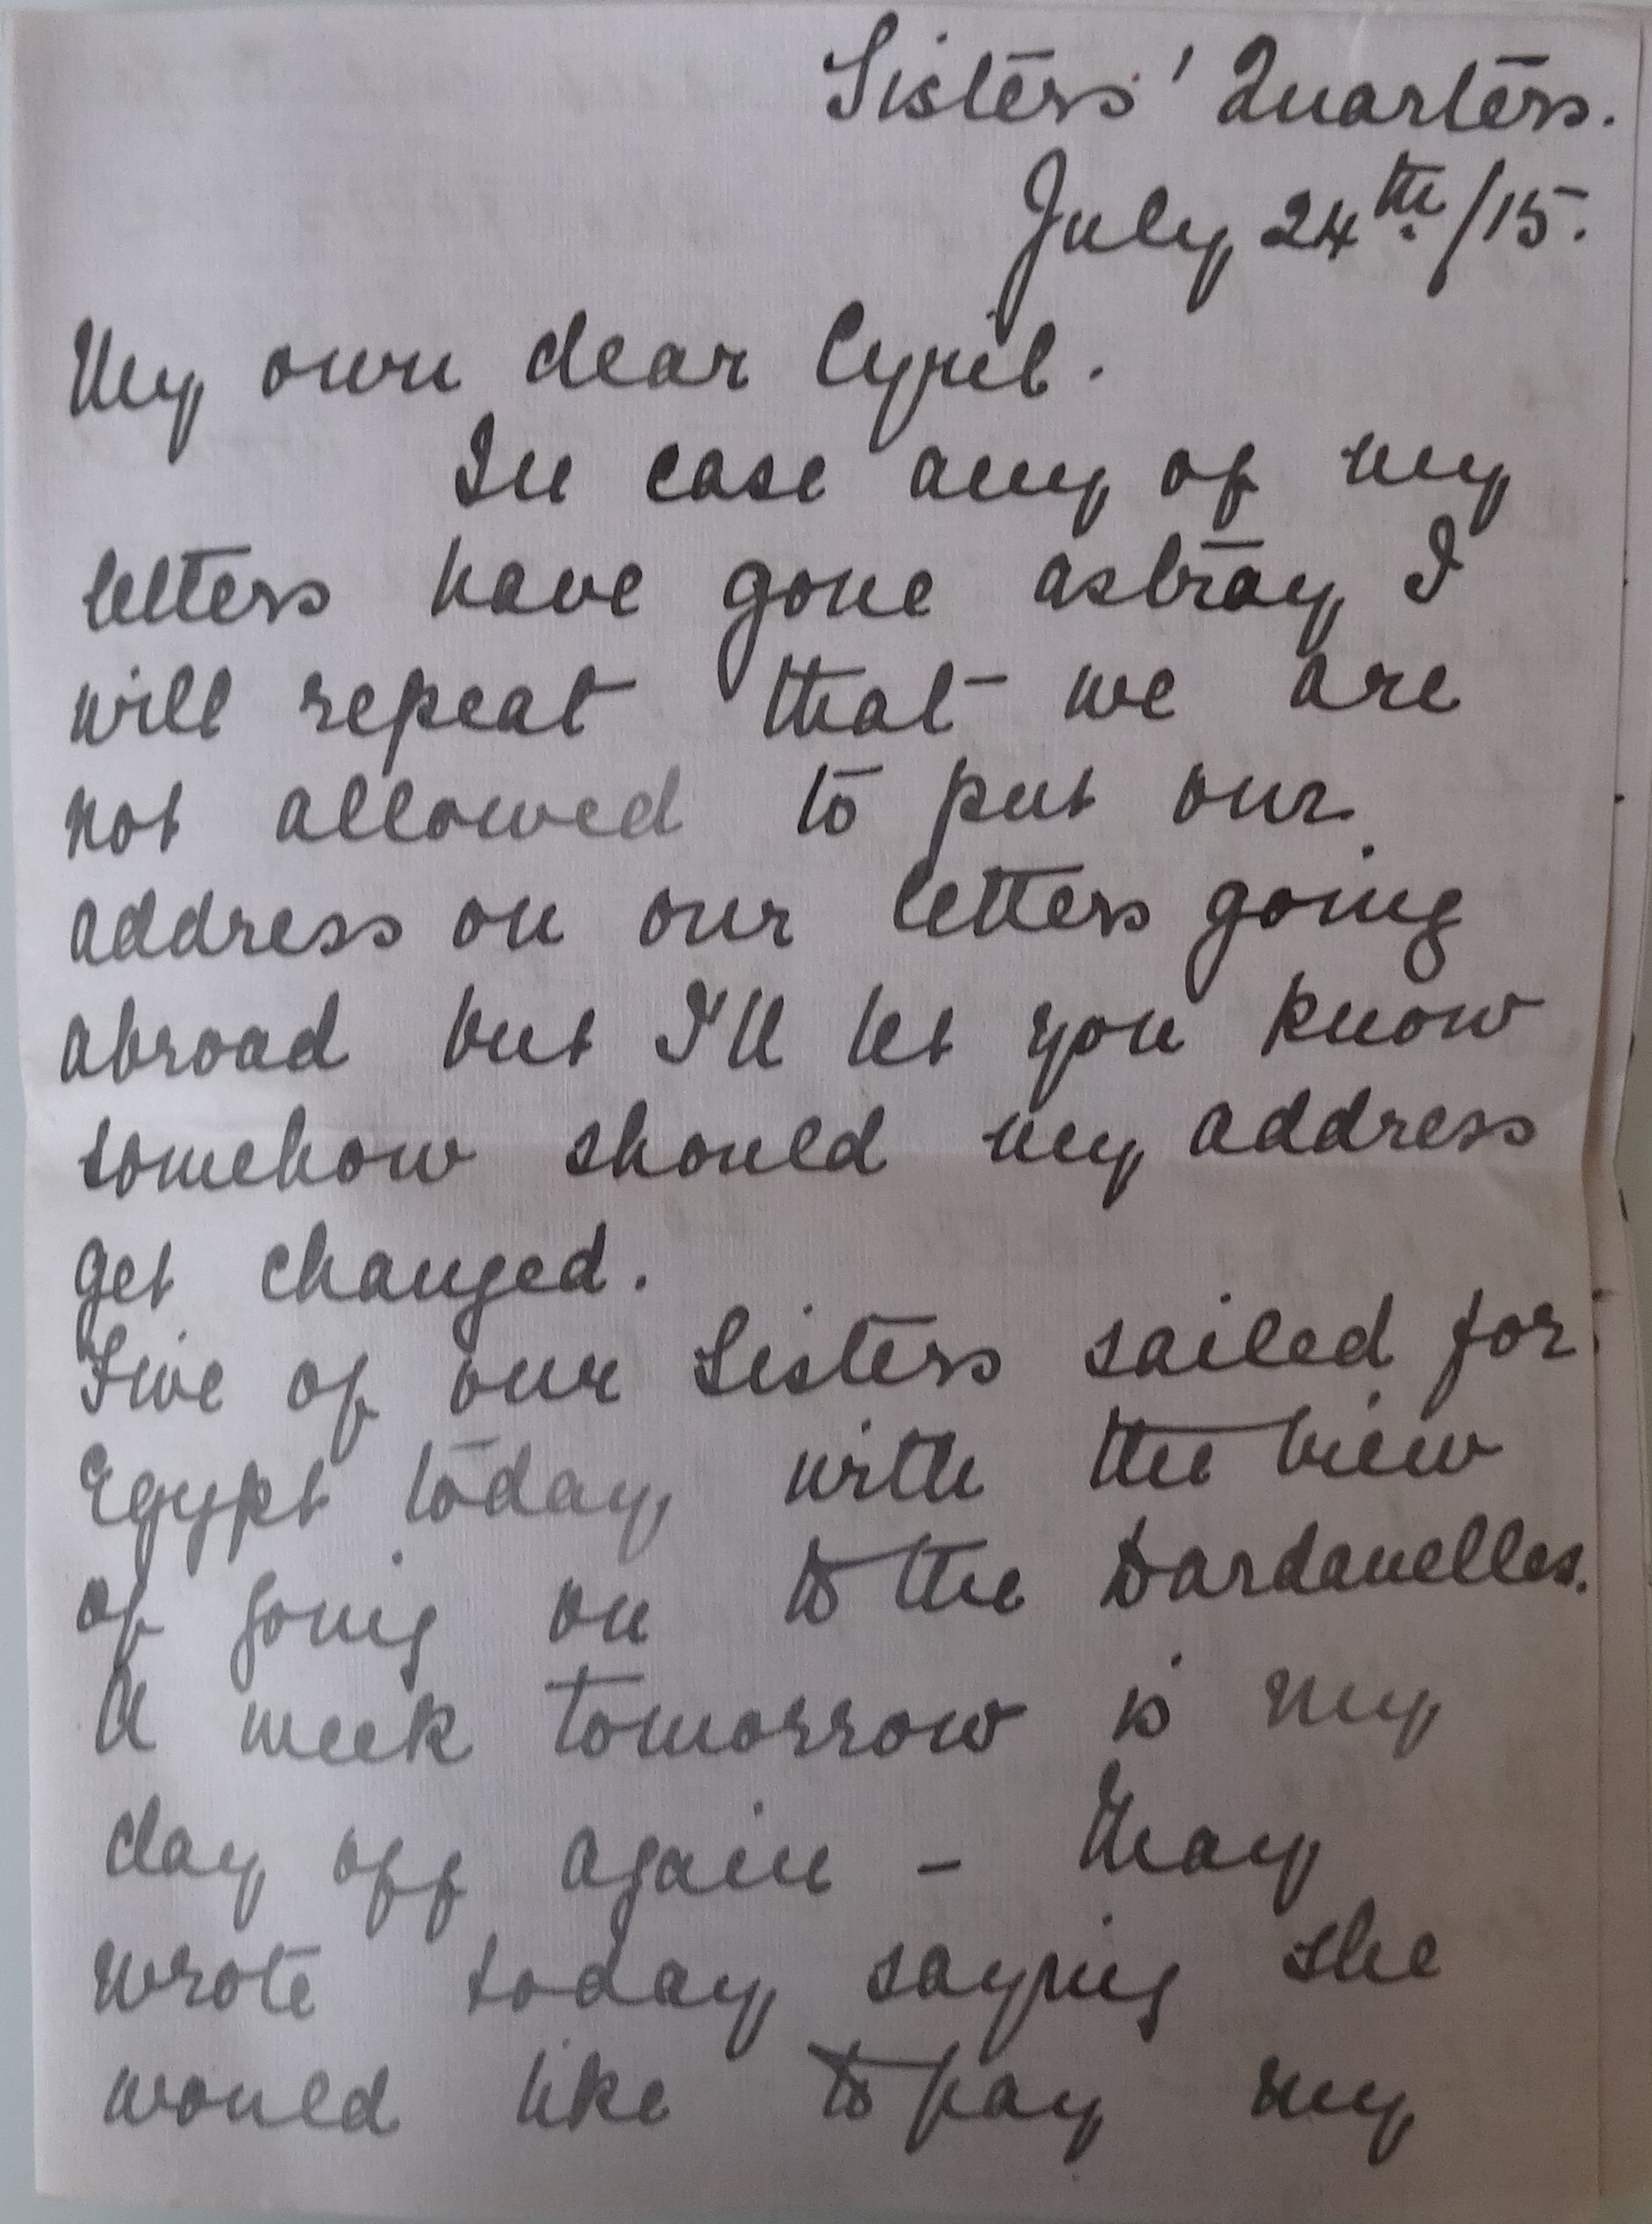 Sisters' Quarters.
July 24th/15.
My own dear Cyril.
In case any of my
letters have gone astray I
will repeat that we are
not allowed to put our
address on our letters going
abroad but I'll let you know
somehow should my address
get changed.
Five of our Sisters sailed for
Egypt today with the view
of going on to the Dardanelles.
A week tomorrow is my
day off again - May
wrote today saying she
would like to pay my